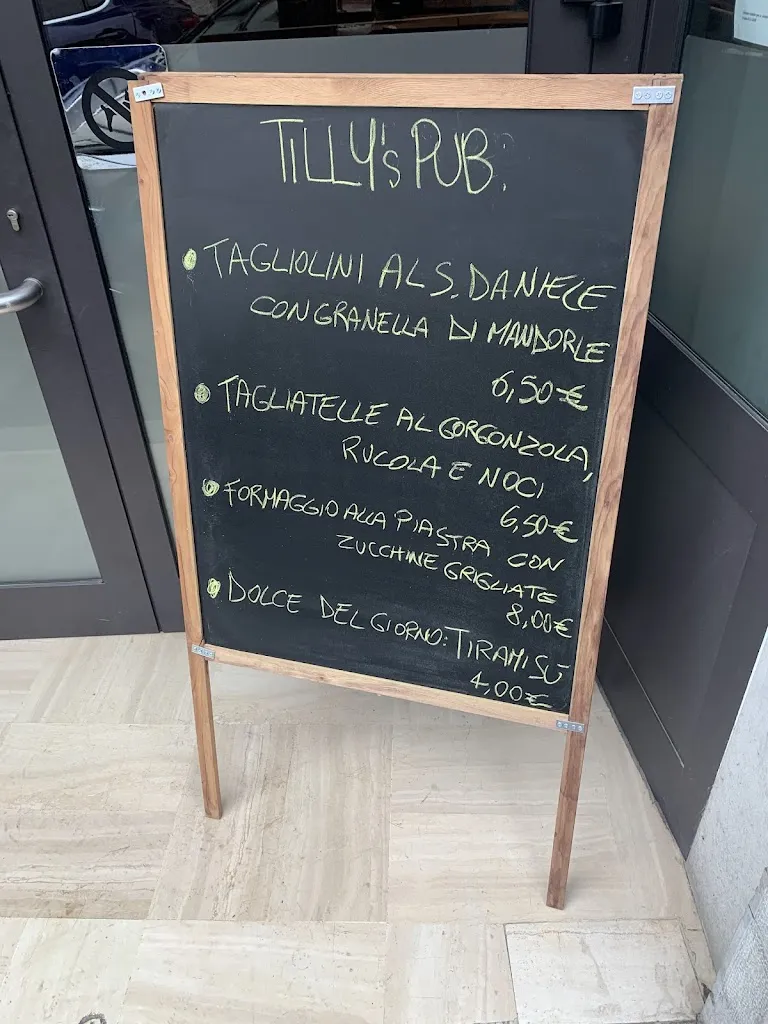 TILLY'S PUB:
TAGLIOLINI AL S. DANIELE
CON GRANELLA DI MANDORLE
6,50€
TAGLIATELLE AL GORGONZOLA,
RUCOLA E NOCI
6,50€
FORMAGGIO ALLA PIASTRA CON
ZUCCHINE GRIGLIATE
8,00€
DOLCE DEL GIORNO: TIRAMISÙ
4,00€